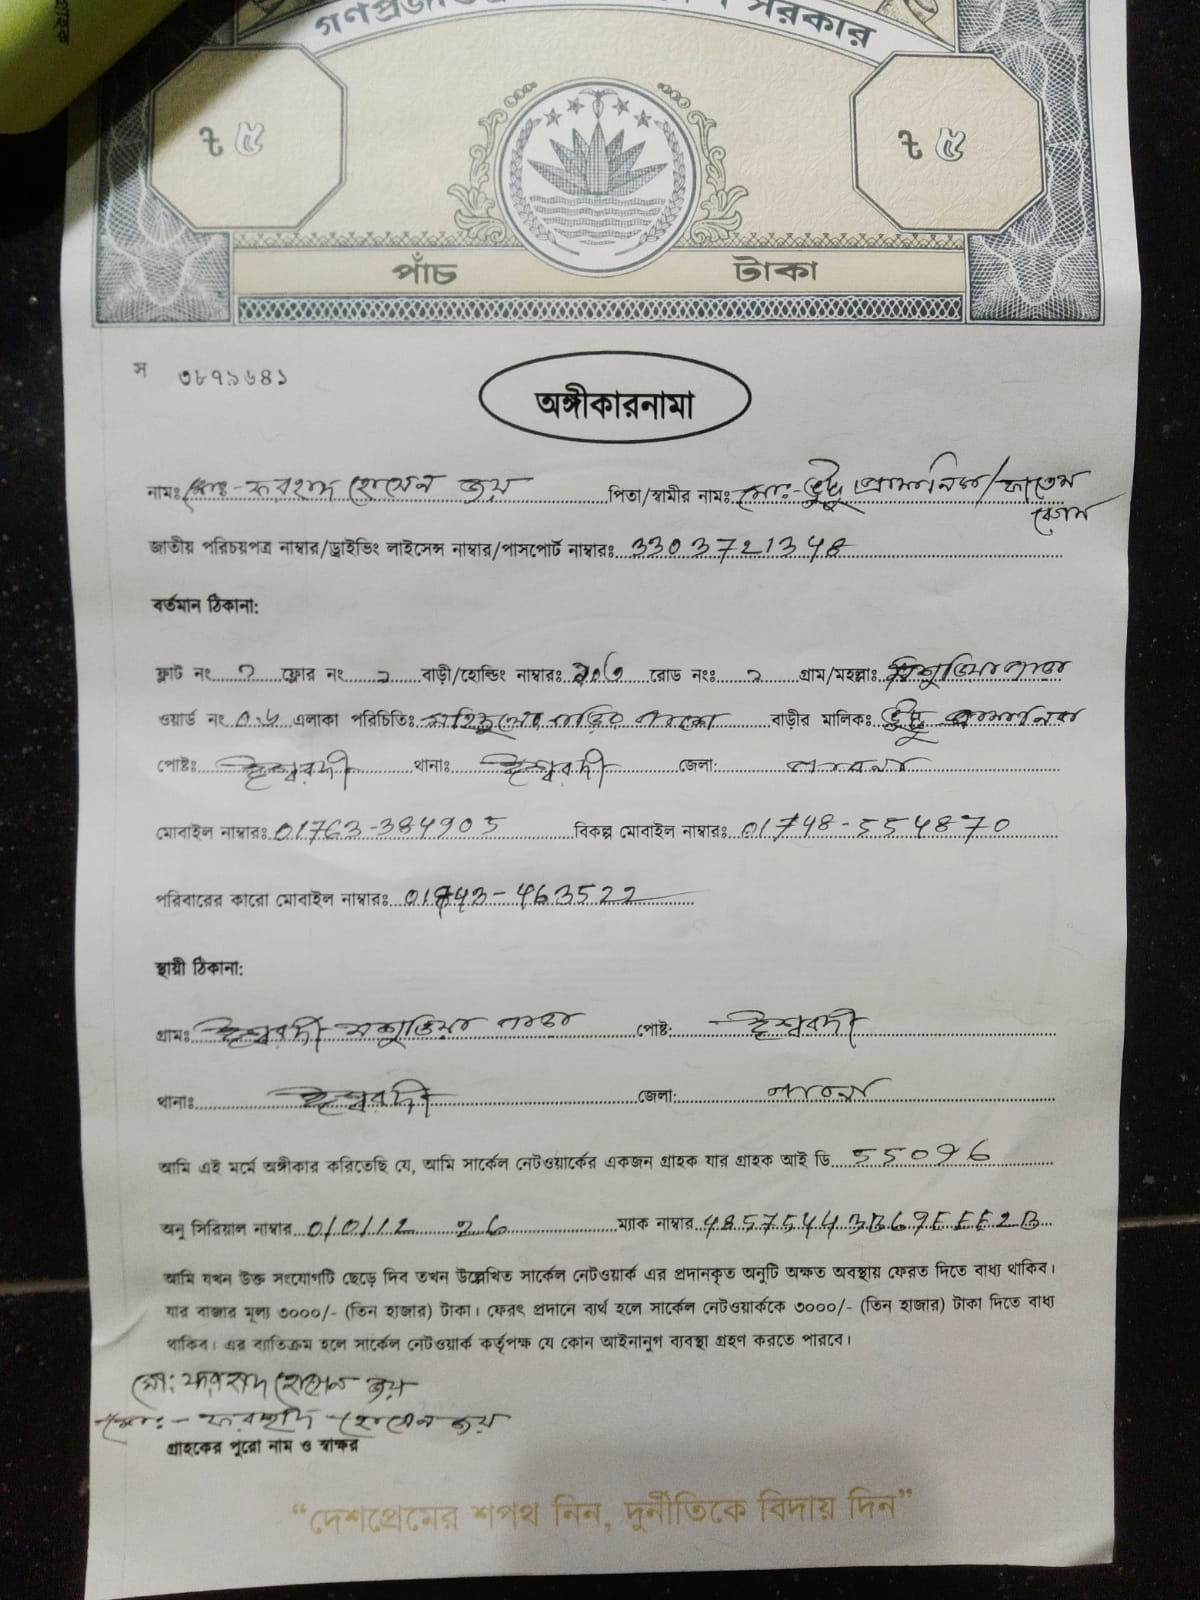 সরকার
৳ ৫
৳ ৫
পাঁচ টাকা
স ৩৮৭১৬৪১
অঙ্গীকারনামা
নামঃ মোঃ-ফরহাদ হোসেন জয় পিতা/স্বামীর নামঃ মোঃ- প্রামানিক/ফাতেমা
বেগম
জাতীয় পরিচয়পত্র নাম্বার/ড্রাইভিং লাইসেন্স নাম্বার/পাসপোর্ট নাম্বারঃ 3303721348
বর্তমান ঠিকানা:
ফ্লাট নং ফ্লোর নং বাড়ী/হোল্ডিং নাম্বারঃ রোড নংঃ গ্রাম/মহল্লাঃ
ওয়ার্ড নং এলাকা পরিচিতিঃ বাড়ীর মালিকঃ প্রামানিক
পোষ্টঃ ঈশ্বরদী থানাঃ ঈশ্বরদী জেলা: পাবনা
মোবাইল নাম্বারঃ 01763-384905 বিকল্প মোবাইল নাম্বারঃ 01748-554870
পরিবারের কারো মোবাইল নাম্বারঃ 01743-463522
স্থায়ী ঠিকানা:
গ্রামঃ ঈশ্বরদী পাড়া পোষ্ট: ঈশ্বরদী
থানাঃ ঈশ্বরদী জেলা: পাবনা
আমি এই মর্মে অঙ্গীকার করিতেছি যে, আমি সার্কেল নেটওয়ার্কের একজন গ্রাহক যার গ্রাহক আই ডি 55096
অনু সিরিয়াল নাম্বার ম্যাক নাম্বার 485754443B69EEE2B
আমি যখন উক্ত সংযোগটি ছেড়ে দিব তখন উল্লেখিত সার্কেল নেটওয়ার্ক এর প্রদানকৃত অনুটি অক্ষত অবস্থায় ফেরত দিতে বাধ্য থাকিব।
যার বাজার মূল্য ৩০০০/- (তিন হাজার) টাকা। ফেরৎ প্রদানে ব্যর্থ হলে সার্কেল নেটওয়ার্ককে ৩০০০/- (তিন হাজার) টাকা দিতে বাধ্য
থাকিব। এর ব্যতিক্রম হলে সার্কেল নেটওয়ার্ক কর্তৃপক্ষ যে কোন আইনানুগ ব্যবস্থা গ্রহণ করতে পারবে।
মো: ফরহাদ হোসেন জয়
মোঃ - ফরহাদ হোসেন জয়
গ্রাহকের পুরো নাম ও স্বাক্ষর
“দেশপ্রেমের শপথ নিন, দুর্নীতিকে বিদায় দিন”